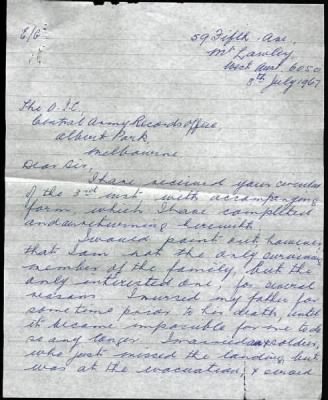 59 Fifth Ave.
Mt Lawley.
West Aust. 6050
8th July 1967
The O.I.C.
Central Army Records Office,
Albert Park,
Melbourne.
Dear Sir,
I have received your circular
of the 3rd inst. with accompanying
form which I have completed
and am returning herewith.
I would point out, however,
that I am not the only surviving
member of the family, but the
only interested one, for several
reasons. I nursed my father for
some time prior to his death, until
it became impossible for me to do
so any longer. I married a soldier,
who just missed the landing, but
was at the evacuation, &